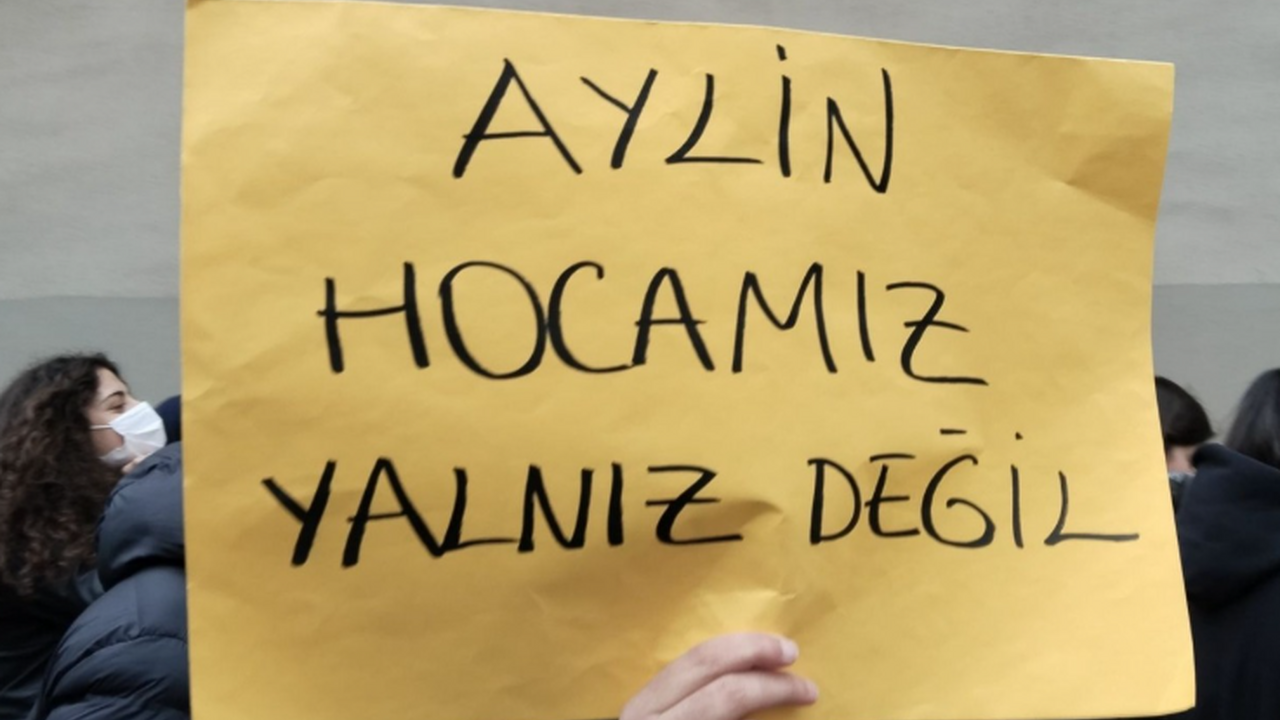 AYLİN
HOCAMIZ
YALNIZ DEĞİL